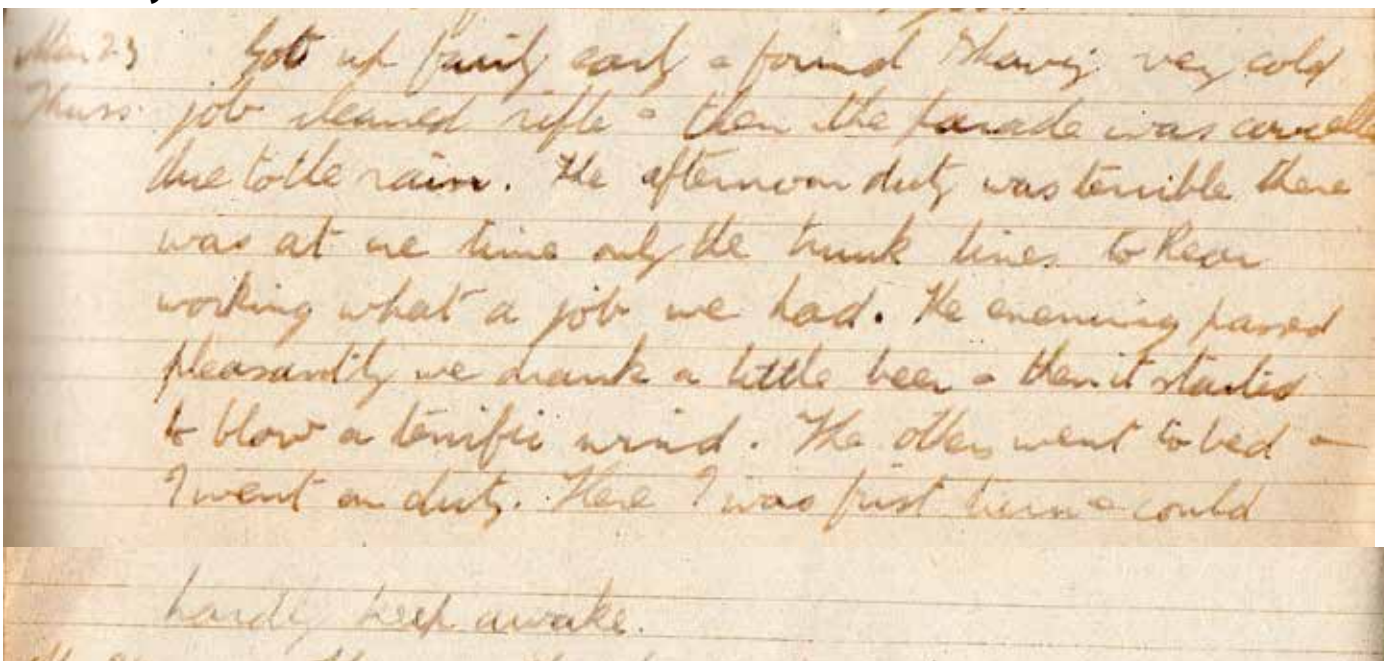 Mar 23 Got up fairly early & found shaving very cold
Thurs. job cleaned rifle & then the parade was cancelled
due to the rain. The afternoon duty was terrible there
was at one time only the trunk lines to Rear
working what a job we had. The evening passed
pleasantly we drank a little beer & then it started
to blow a terrific wind. The others went to bed &
I went on duty. Here I was first turn & could
hardly keep awake.